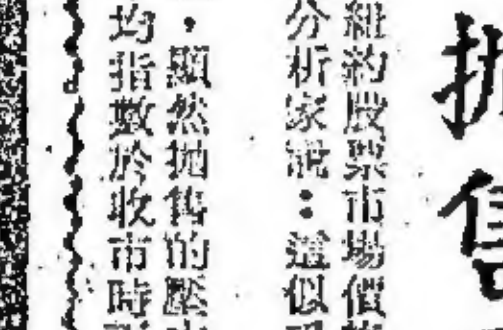 拋售
紐約股票市場假
分析家說：這似
，顯然拋售的壓
均指數於收市時